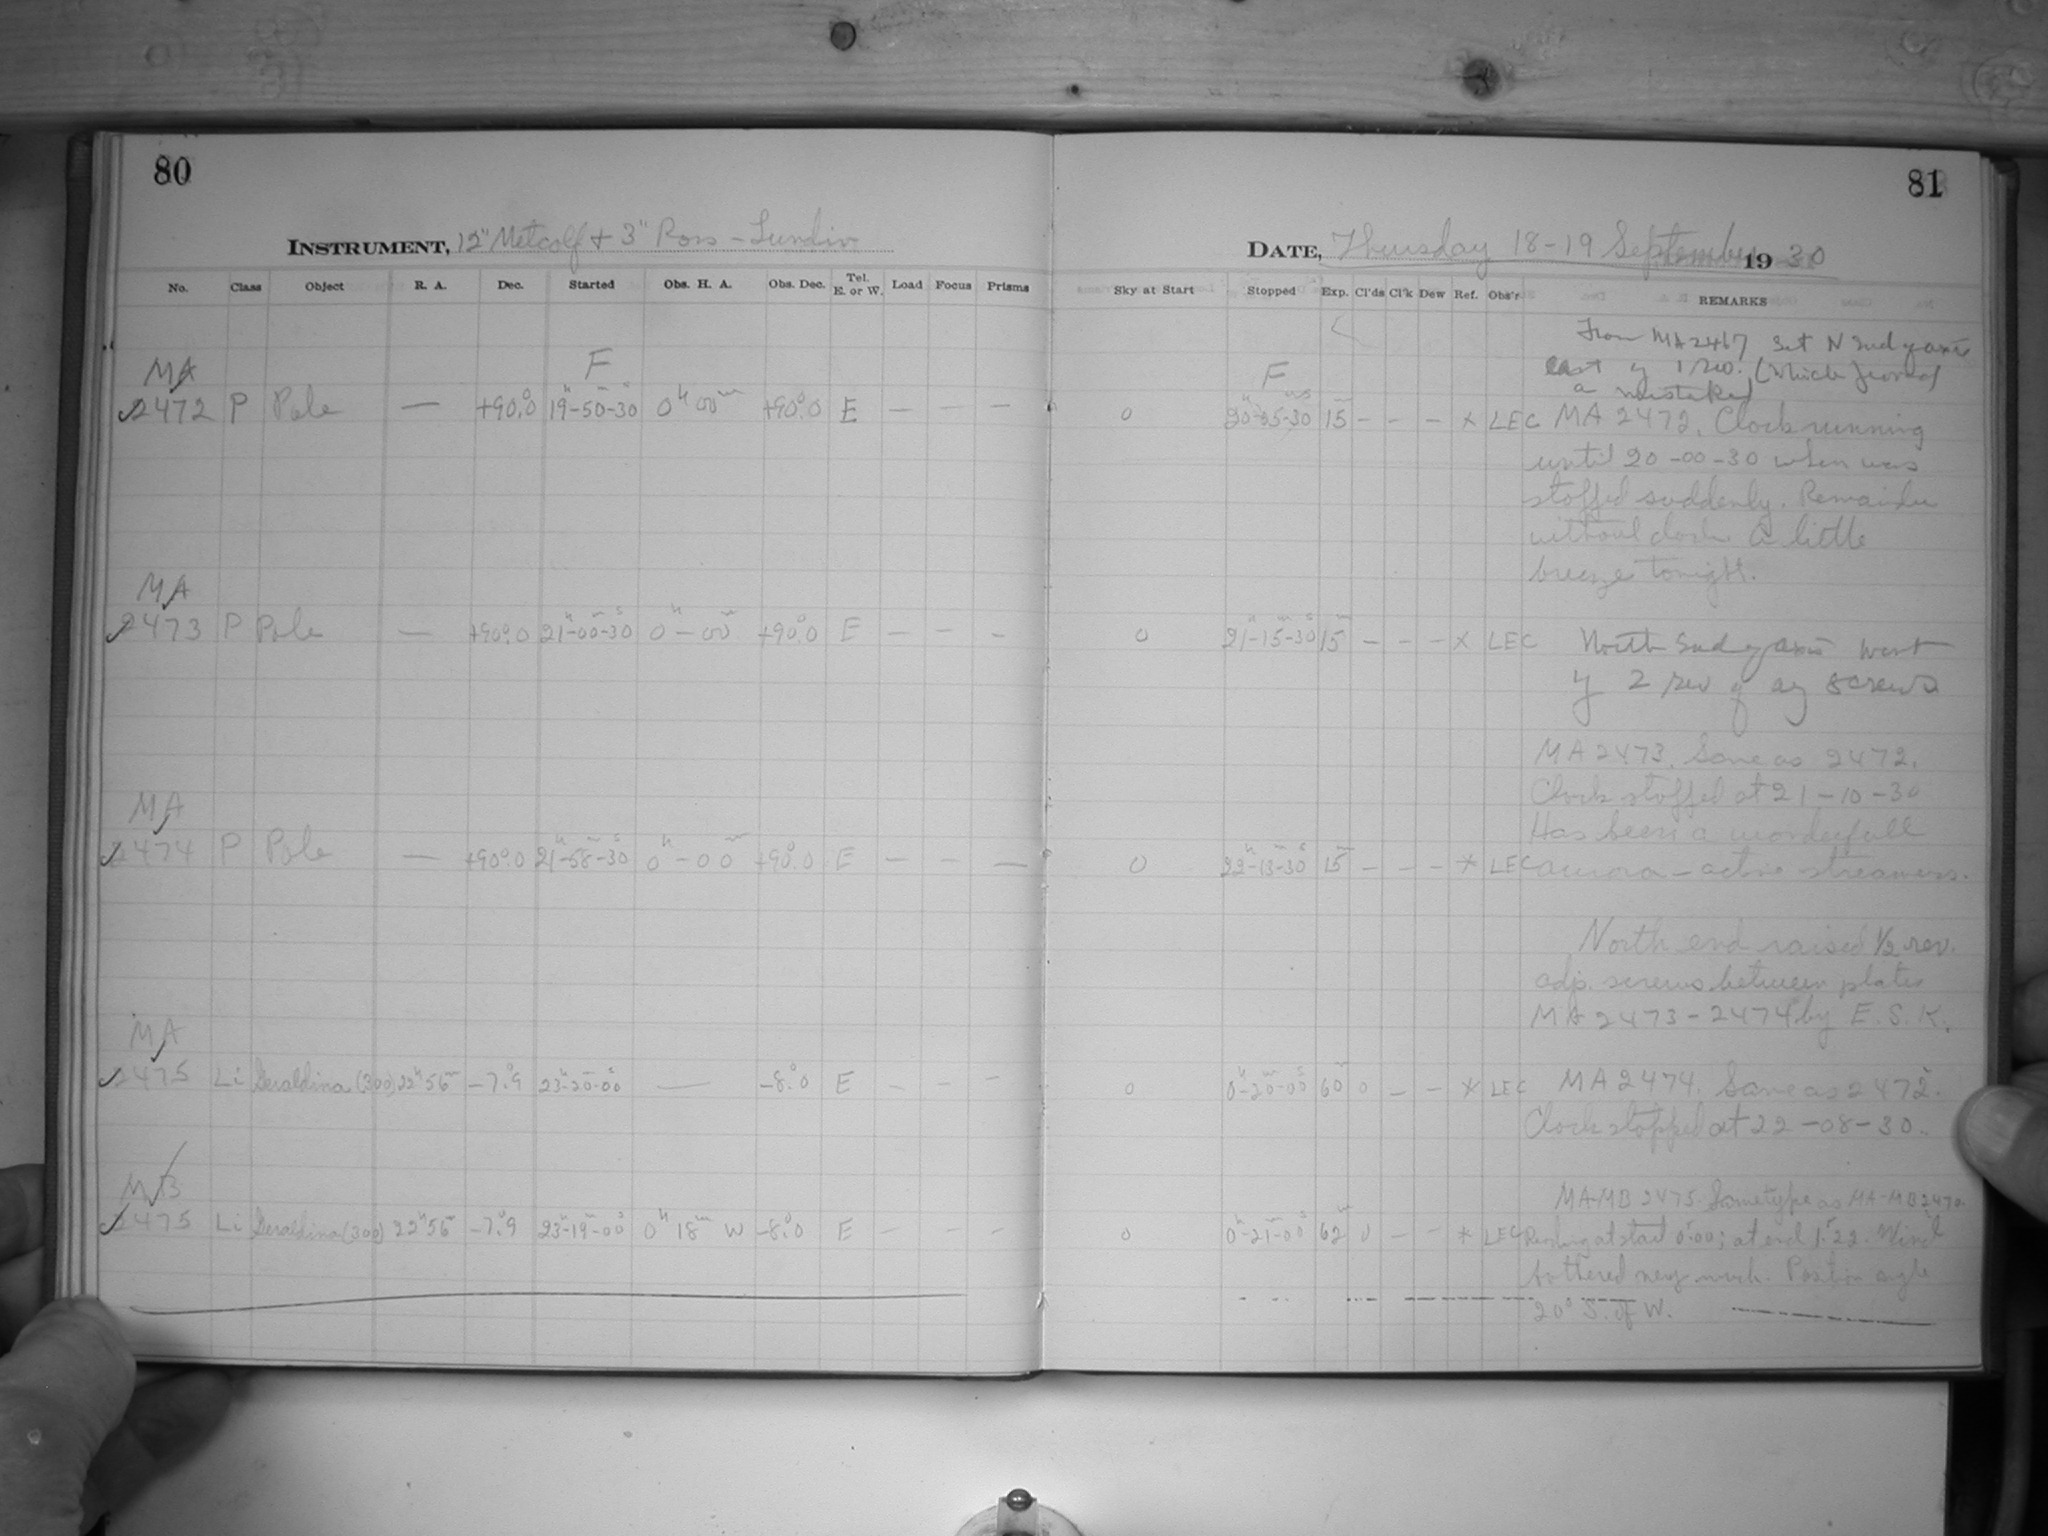 80
81
INSTRUMENT, 12" Metcalf + 3" Ross - Lundin
DATE, Thursday 18-19 September 1930
No. Class Object R. A. Dec. Started Obs. H. A. Obs. Dec. Tel. E. or W. Load Focus Prisms
Sky at Start Stopped Exp. Cl'ds Cl'k Dew Ref. Obs'r REMARKS
From MA 2467 set N end of axis
east by 1 rev. (which proved
a mistake)
MA F F
2472 P Pole — +90°.0 19-50-30 0h 00m +90°.0 E — — — 0 20-05-30 15 - - - x LEC MA 2472. Clock running
until 20-00-30 when was
stopped suddenly. Remainder
without clock. A little
breeze tonight.
MA
2473 P Pole — +90°.0 21-00-30 0h-00m +90°.0 E — — — 0 21-15-30 15 - - - x LEC North end of axis west
by 2 rev of az screws
MA 2473. Same as 2472.
Clock stopped at 21-10-30
Has been a wonderfull
MA
2474 P Pole — +90°.0 21-58-30 0h-00m +90°.0 E — — — 0 22-13-30 15 - - - x LEC aurora - active streamers.
North end raised ½ rev.
adj. screws between plates
MA 2473-2474 by E. S. K.
MA
2475 Li Geraldina (300) 22h 56m -7°.9 23-20-00 — -8°.0 E - - - 0 0-20-00 60 0 - - x LEC MA 2474. Same as 2472.
Clock stopped at 22-08-30.
MB
2475 Li Geraldina (300) 22h 56m -7°.9 23-19-00 0h 18m W -8°.0 E - - - 0 0-21-00 62 0 - - x LEC at start 0.00; at end 1.22. Wind
MA-MB 2475. Same type as MA-MB 2470.
bothered very much. Position angle
20° S. of W.